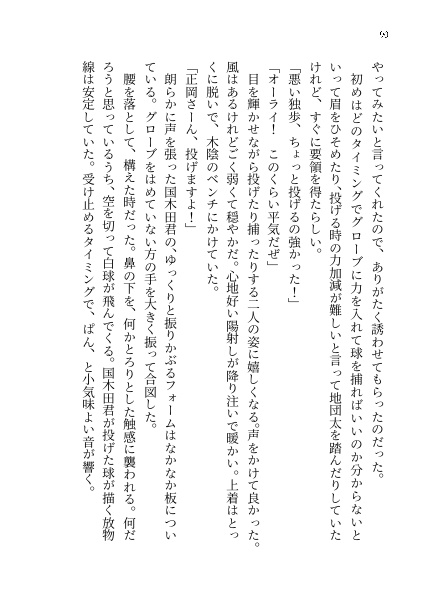 93
やってみたいと言ってくれたので、ありがたく誘わせてもらったのだった。
初めはどのタイミングでグローブに力を入れて球を捕ればいいのか分からないと
いって眉をひそめたり、投げる時の力加減が難しいと言って地団太を踏んだりしていた
けれど、すぐに要領を得たらしい。
「悪い独歩、ちょっと投げるの強かった！」
「オーライ！　このくらい平気だぜ」
目を輝かせながら投げたり捕ったりする二人の姿に嬉しくなる。声をかけて良かった。
風はあるけれどごく弱くて穏やかだ。心地好い陽射しが降り注いで暖かい。上着はとっ
くに脱いで、木陰のベンチにかけていた。
「正岡さーん、投げますよ！」
朗らかに声を張った国木田君の、ゆっくりと振りかぶるフォームはなかなか板につい
ている。グローブをはめていない方の手を大きく振って合図した。
腰を落として、構えた時だった。鼻の下を、何かとろりとした触感に襲われる。何だ
ろうと思っているうち、空を切って白球が飛んでくる。国木田君が投げた球が描く放物
線は安定していた。受け止めるタイミングで、ぱん、と小気味よい音が響く。